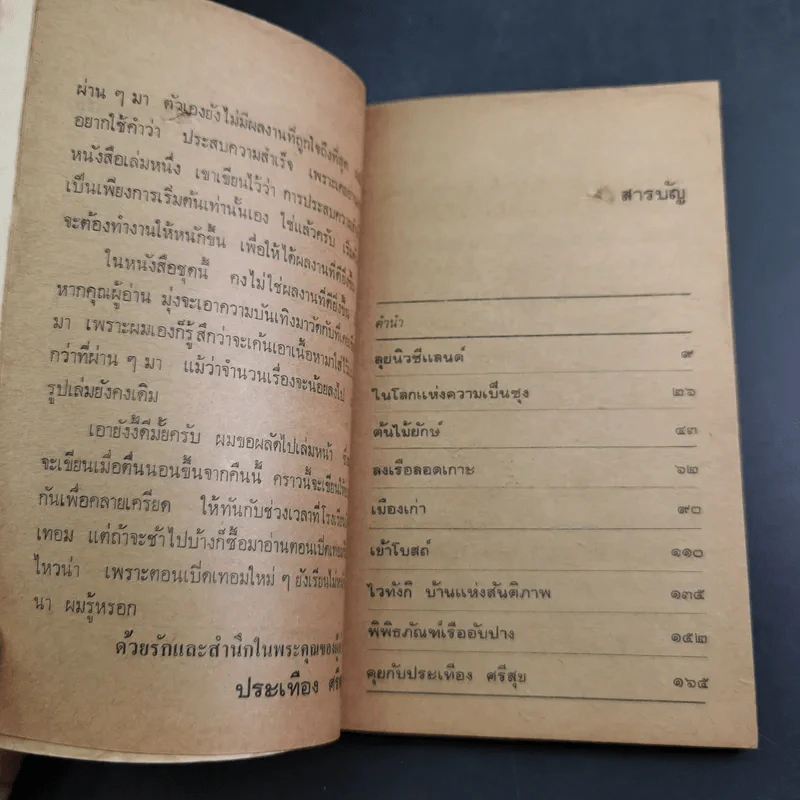 ผ่าน ๆ มา ตัวเองยังไม่มีผลงานที่ถูกใจถึงที่สุด
อยากใช้คำว่า ประสบความสำเร็จ เพราะเคย
หนังสือเล่มหนึ่ง เขาเขียนไว้ว่า การประสบความ
เป็นเพียงการเริ่มต้นเท่านั้นเอง ใช่แล้วครับ
จะต้องทำงานให้หนักขึ้น เพื่อให้ได้ผลงานที่ดียิ่งขึ้น
ในหนังสือชุดนี้ คงไม่ใช่ผลงานที่ดียิ่งขึ้น
หากคุณผู้อ่าน มุ่งจะเอาความบันเทิงมาวัดกับ
มา เพราะผมเองก็รู้สึกว่าจะเค้นเอาเนื้อหามาใส่ไว้
กว่าที่ผ่าน ๆ มา แม้ว่าจำนวนเรื่องจะน้อยลงไป
รูปเล่มยังคงเดิม
เอายังงี้ดีมั้ยครับ ผมขอผลัดไปเล่มหน้า
จะเขียนเมื่อตื่นนอนขึ้นจากคืนนี้ คราวนี้จะเขียนให้
กันเพื่อคลายเครียด ให้ทันกับช่วงเวลาที่โรงเรียน
เทอม แต่ถ้าจะช้าไปบ้างก็ซื้อมาอ่านตอนเปิดเทอม
ไหวน่า เพราะตอนเปิดเทอมใหม่ ๆ ยังเรียนไม่
นา ผมรู้หรอก
ด้วยรักและสำนึกในพระคุณของ
ประเทือง ศรี
สารบัญ
คำนำ
ลุยนิวซีแลนด์ ๙
ในโลกแห่งความเป็นซุง ๒๖
ต้นไม้ยักษ์ ๔๓
ลงเรือลอดเกาะ ๖๒
เมืองเก่า ๙๐
เย้าโบสถ์ ๑๑๐
ไวทังกิ บ้านแห่งสันติภาพ ๑๓๕
พิพิธภัณฑ์เรืออับปาง ๑๕๒
คุยกับประเทือง ศรีสุข ๑๖๕